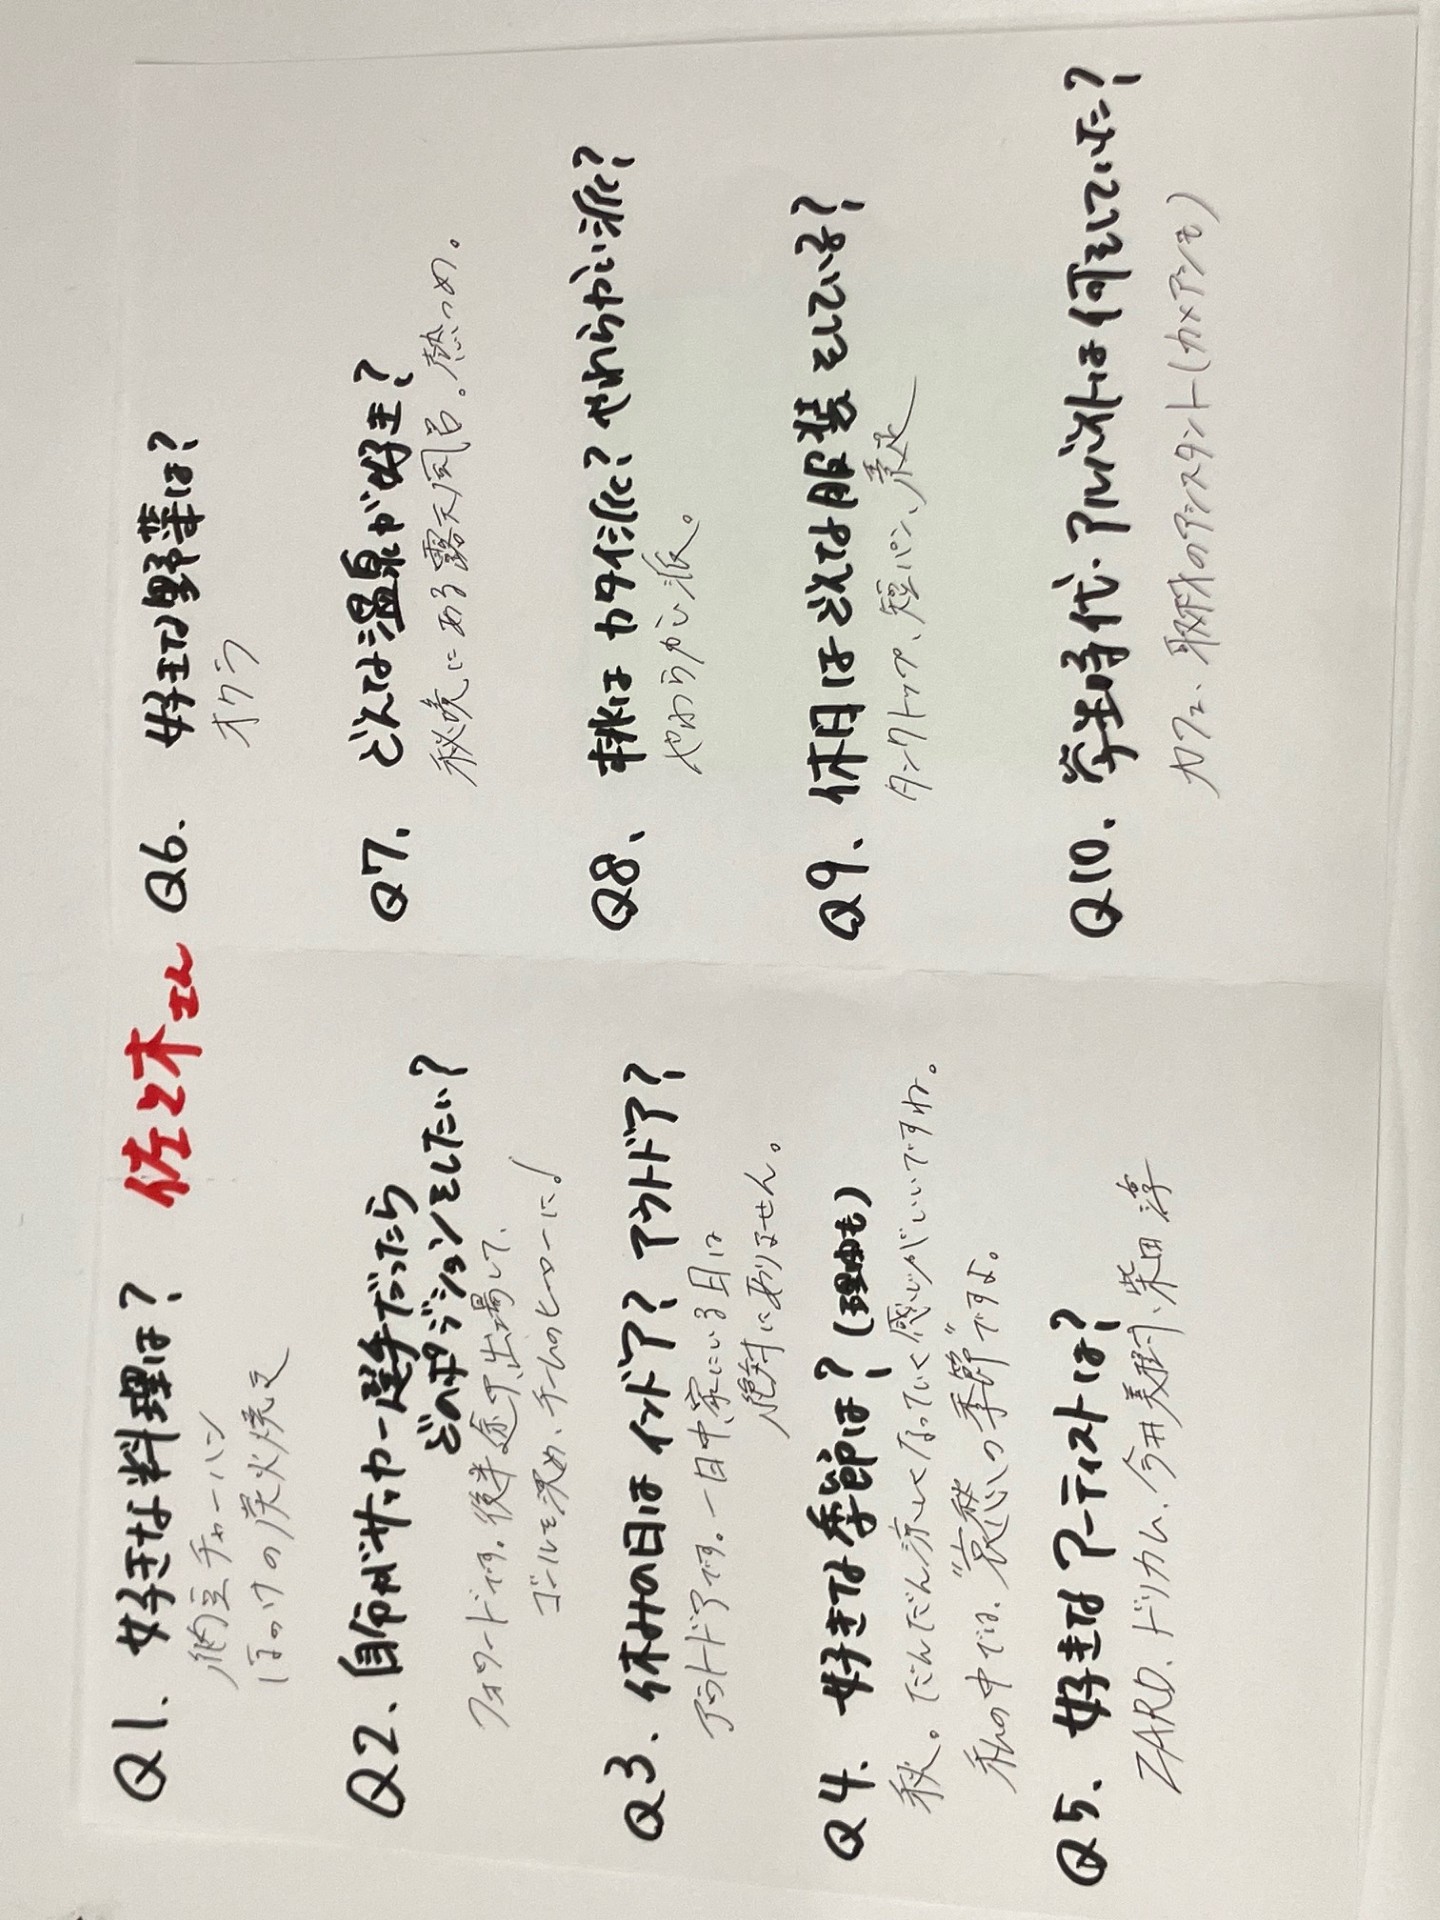 佐々木さん
Q1. 好きな料理は?
納豆チャーハン
ほっけの炭火焼き
Q2. 自分がサッカー選手だったら
どのポジションをしたい?
フォワードです。後半途中出場して、
ゴールを決め、チームのヒーローに!
Q3. 休みの日はインドア?アウトドア?
アウトドアです。一日中、家にいる日は
絶対にありません。
Q4. 好きな季節は?(理由も)
秋。だんだん涼しくなっていく感じがいいですね。
私の中では、"哀愁の季節"ですよ。
Q5. 好きなアーティストは?
ZARD、ドリカム、今井美樹、柴田淳
Q6. 好きな野菜は?
オクラ
Q7. どんな温泉が好き?
秘境にある露天風呂。熱つめ。
Q8. 米はカタイ派?やわらかい派?
やわらかい派。
Q9. 休日はどんな服装をしている?
タンクトップ、短パン、素足
Q10. 学生時代・アルバイトは何をしていた?
カフェ、取材のアシスタント(カメアシも)